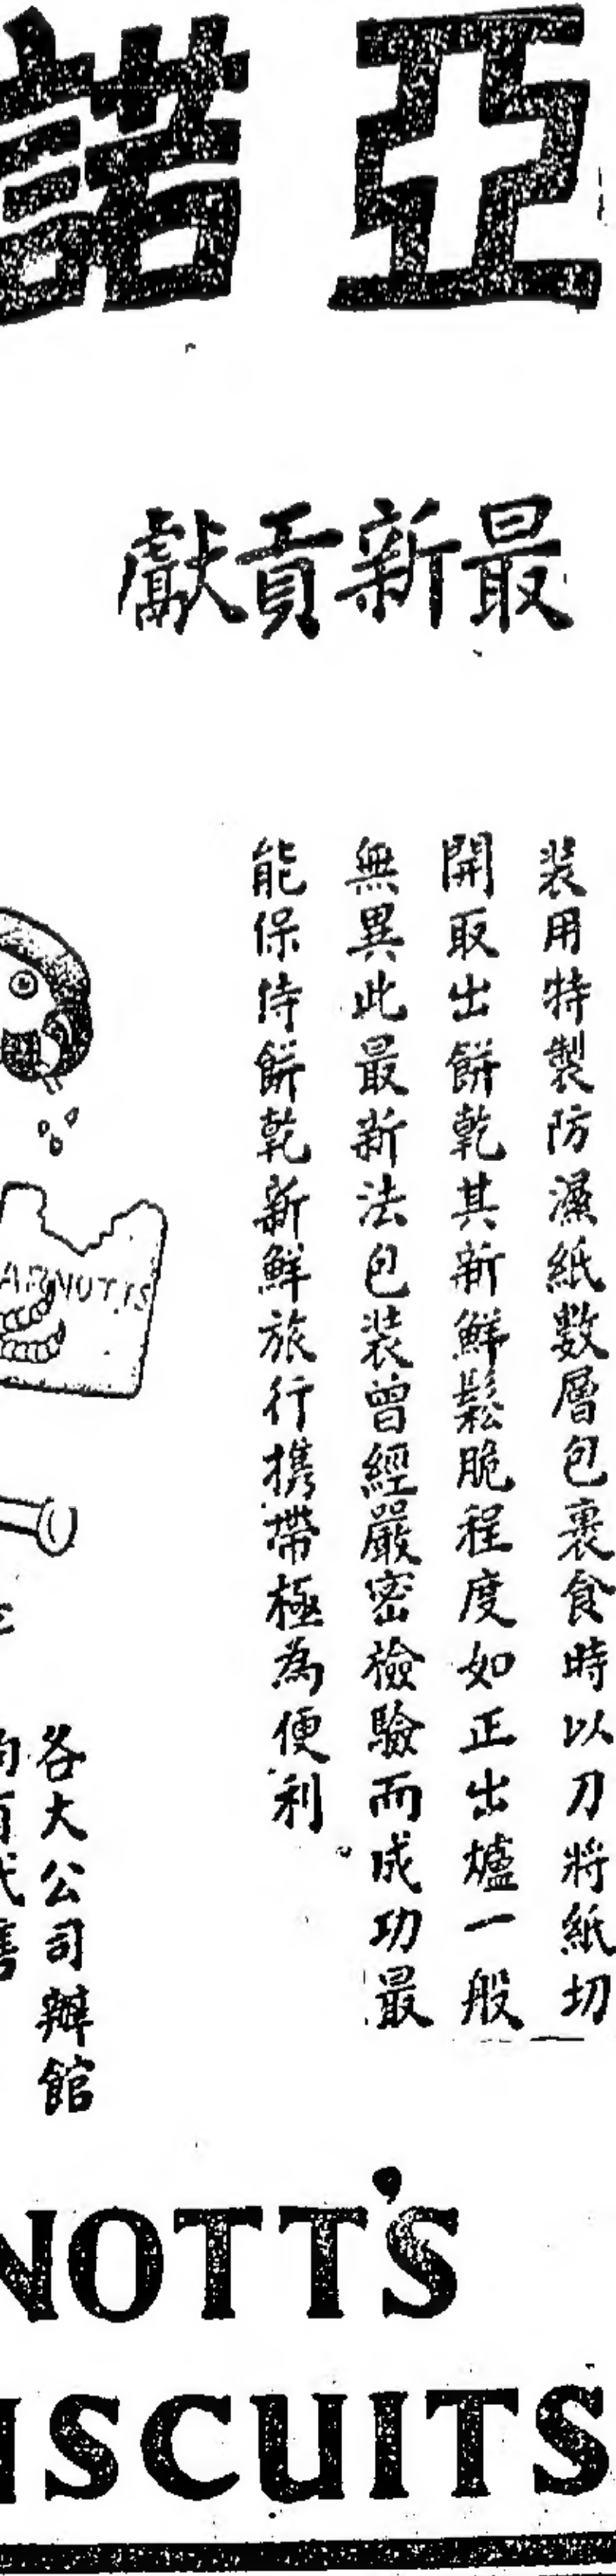 亞諾
最新貢獻
裝用特製防濕紙數層包裹食時以刀將紙切
開取出餅乾其新鮮鬆脆程度如正出爐一般
無異此最新法包装曾經嚴密檢驗而成功最
能保侍餅乾新鮮旅行携帶極為便利。
ARNOTTS
各大公司辦館
NOTT'S
ISCUITS